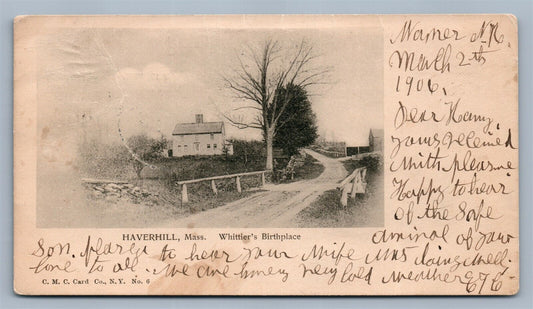 Warner N.H.
March 2th
1906.
Dear Harry,
yours received
with pleasure
Happy to hear
of the safe
arrival of your
Son. to hear your wife was doing well.
love to all. we are having very cold weather
HAVERHILL, Mass. Whittier's Birthplace
C. M. C. Card Co., N. Y. No. 6